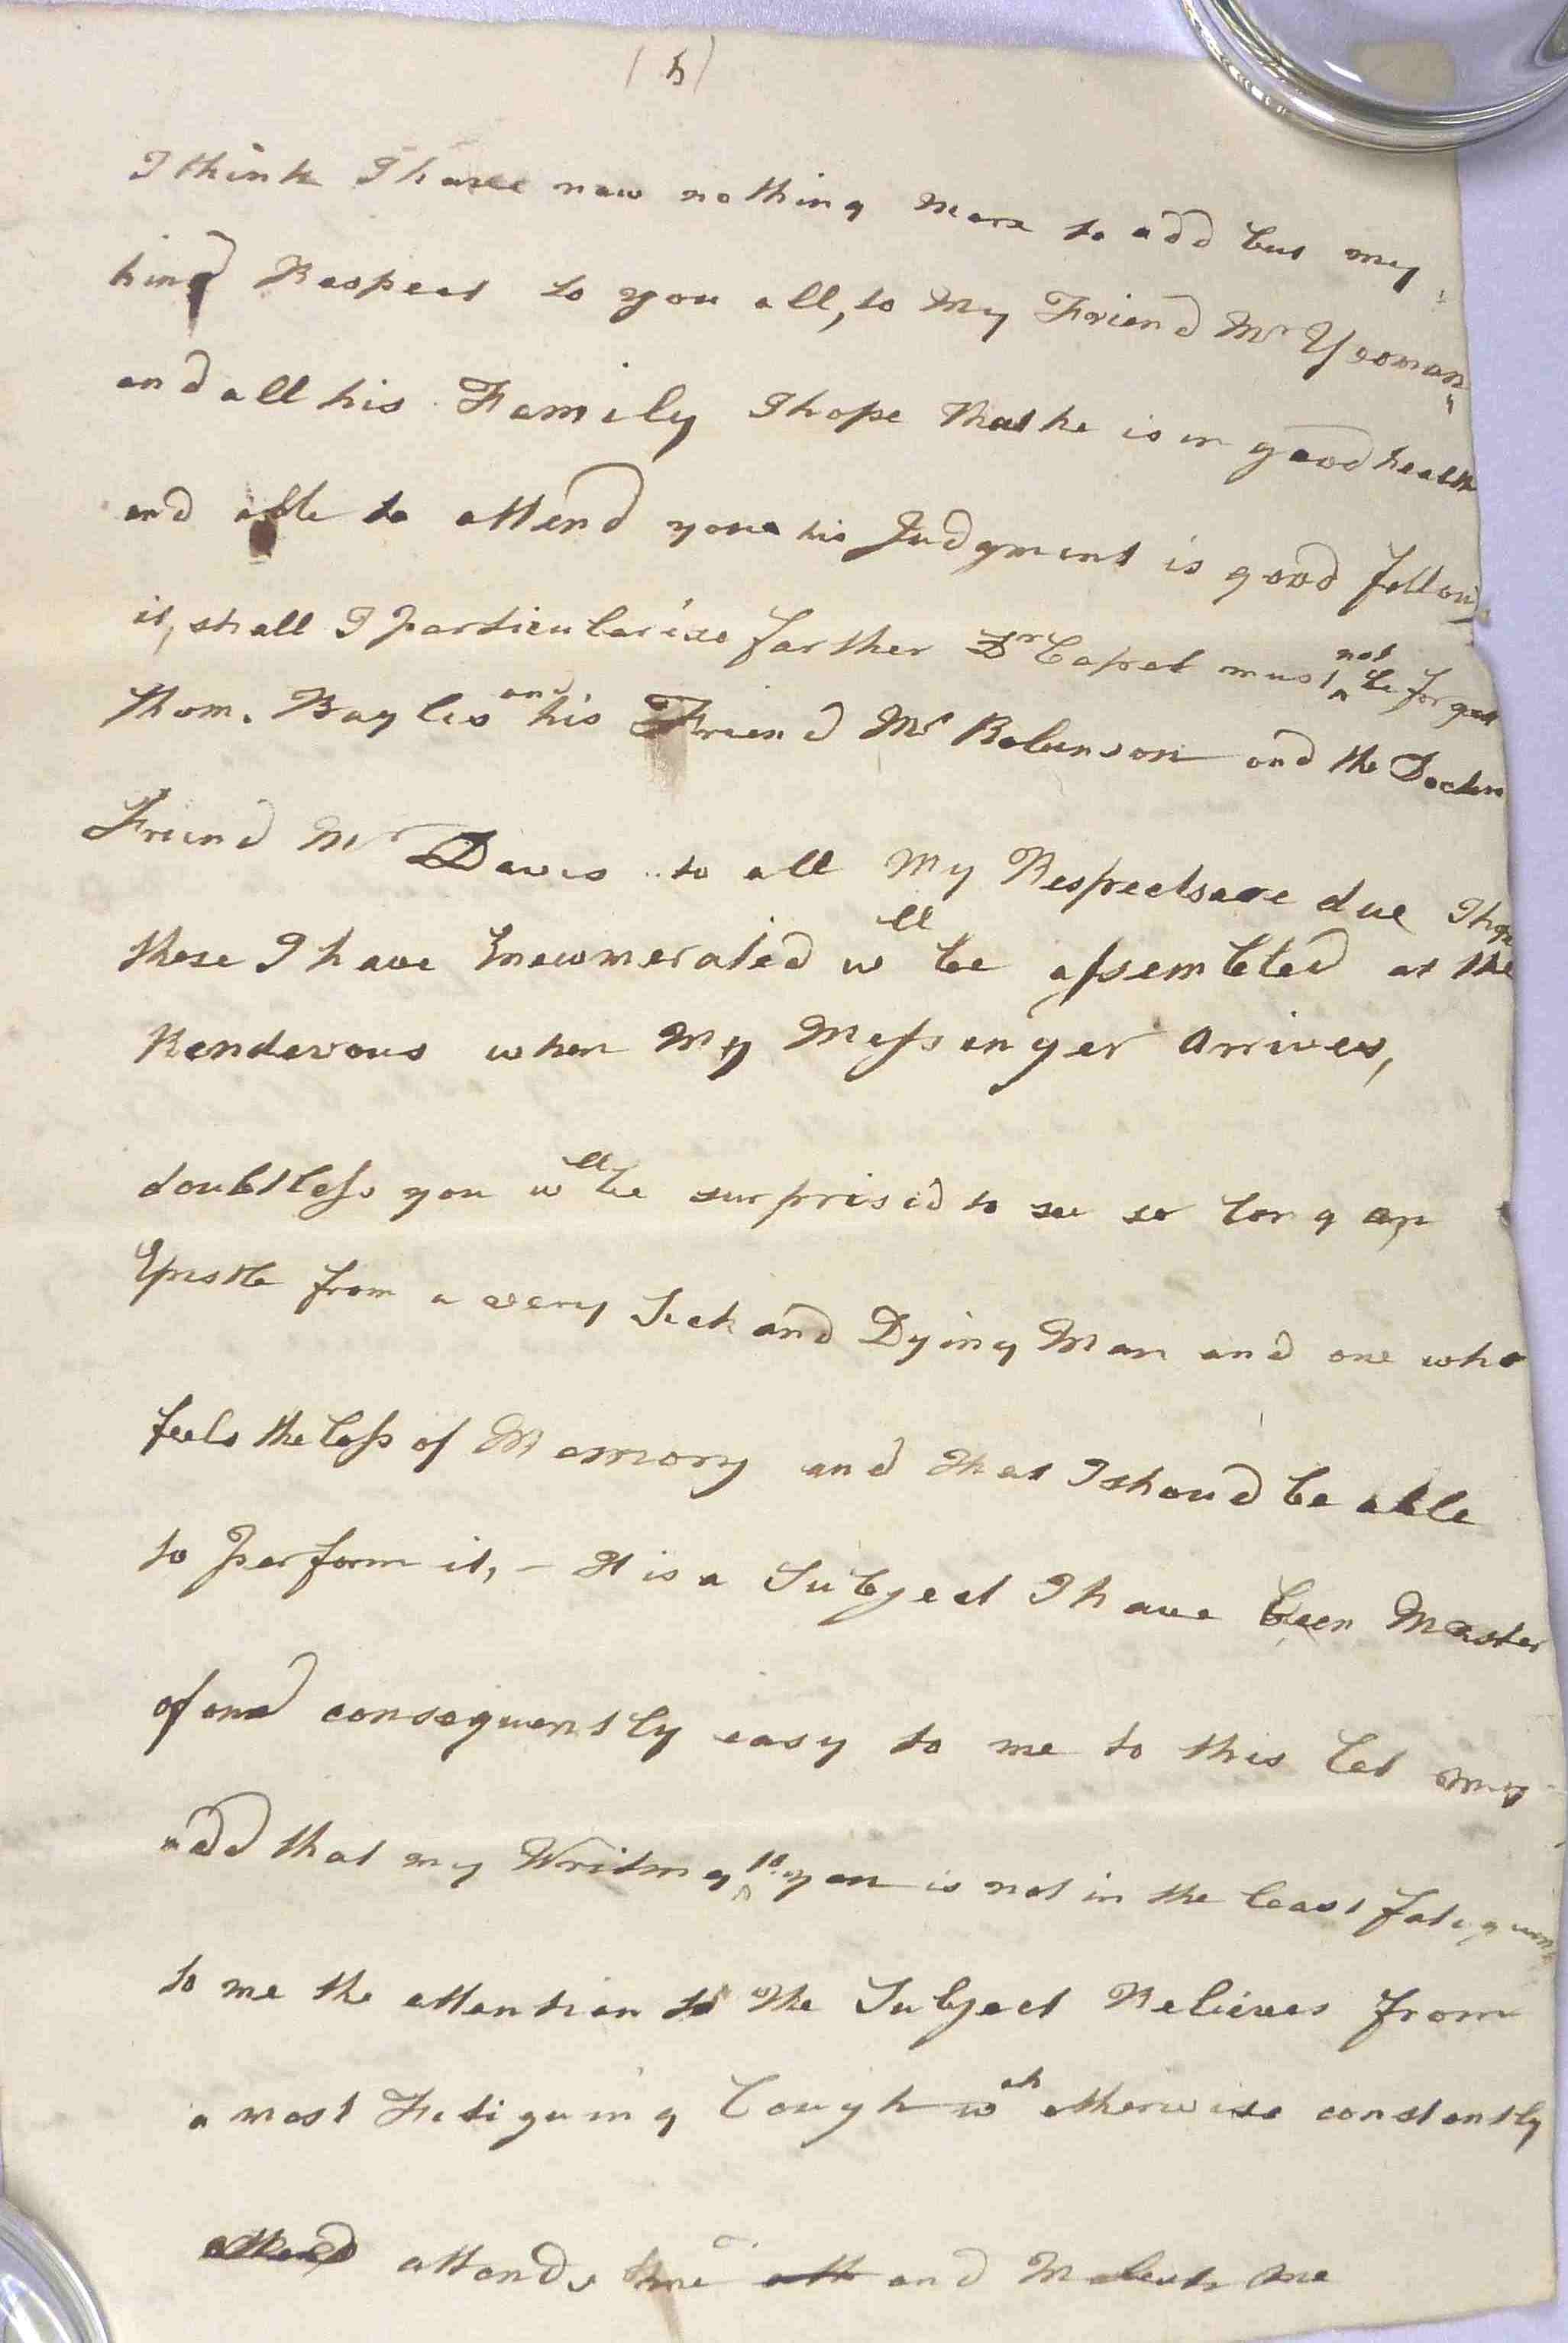 (5)
I think I have now nothing more to add but my
kind Respect to you all, to My Friend Mr Yeoman
and all his Family I hope that he is in good health
and able to attend you his Judgment is good follow
it, shall I particularise farther Dr Capel must not be forgot
Thom. Baylis and his Friend Mr Robinson and the Doctors
Friend Mr Davis to all My Respects are due I hope
these I have Enewmerated wll be assembled at the
Rendevous when My Messenger Arrives,
doubtless you wll be surprised to see so long an
Epistle from a very Sick and Dying Man and one who
feels the loss of Memory and that I shoud be able
to perform it, – It is a Subject I have been Master
of and consequently easy to me to this let my
add that my Writing to you is not in the least fatiguing
to me the attention to the Subject Relieves from
a most Fatiguing Cough wch otherwise constantly
attend attends me att and Molests me